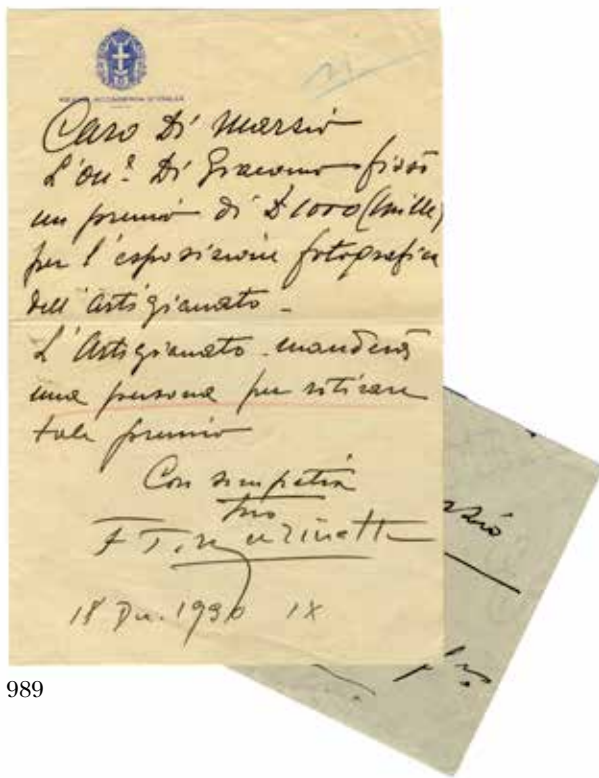 REALE ACCADEMIA D'ITALIA
Caro Di Marzio
L'on. Di Giacomo fissò
un premio di £ 1000 (mille)
per l'esposizione fotografica
dell'Artigianato -
L'Artigianato manderà
una persona per ritirare
tale premio
Con simpatia
tuo
F T Marinetti
18 Dic. 1930 IX
989